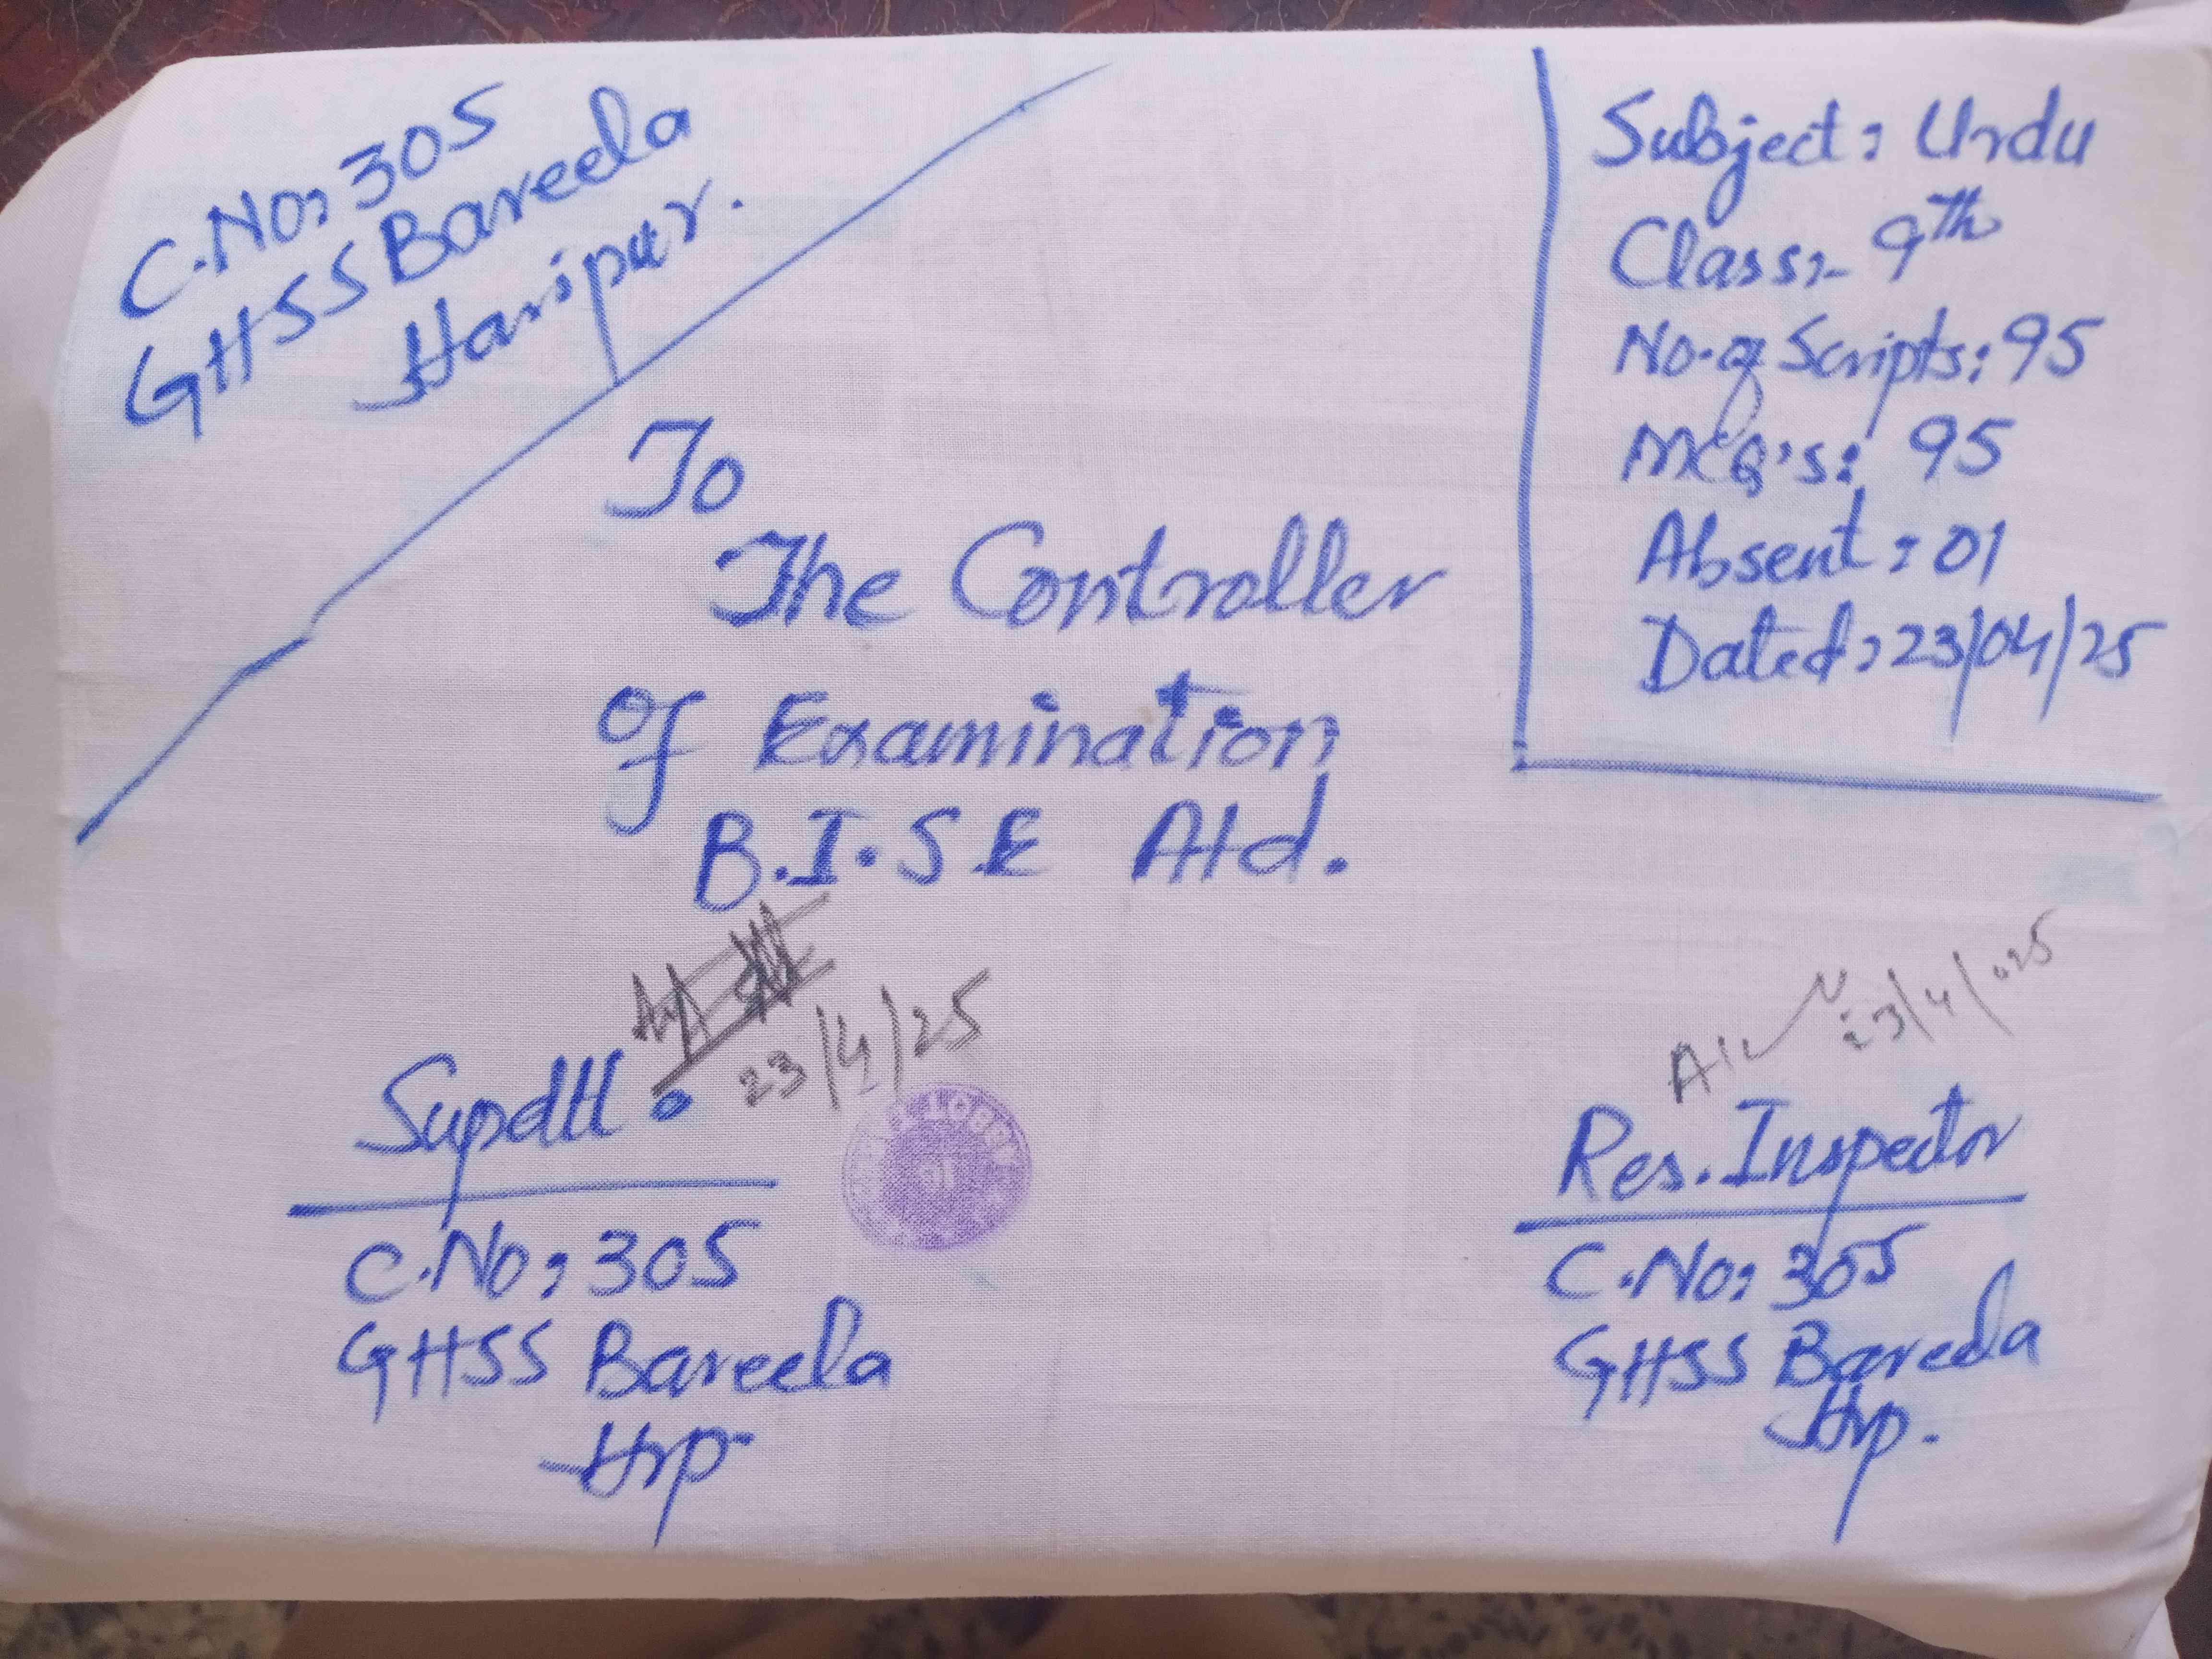 C.No: 305
GHSS Bareela
Haripur.
Subject: Urdu
Class:- 9th
No. of Scripts: 95
MCQ's: 95
Absent: 01
Dated: 23/04/25
To
The Controller
of Examination
B.I.S.E Atd.
23/4/25
Supdtt.
C.No: 305
GHSS Bareela
Hrp.
23/4/025
Res. Inspector
C.No: 305
GHSS Bareela
Hrp.